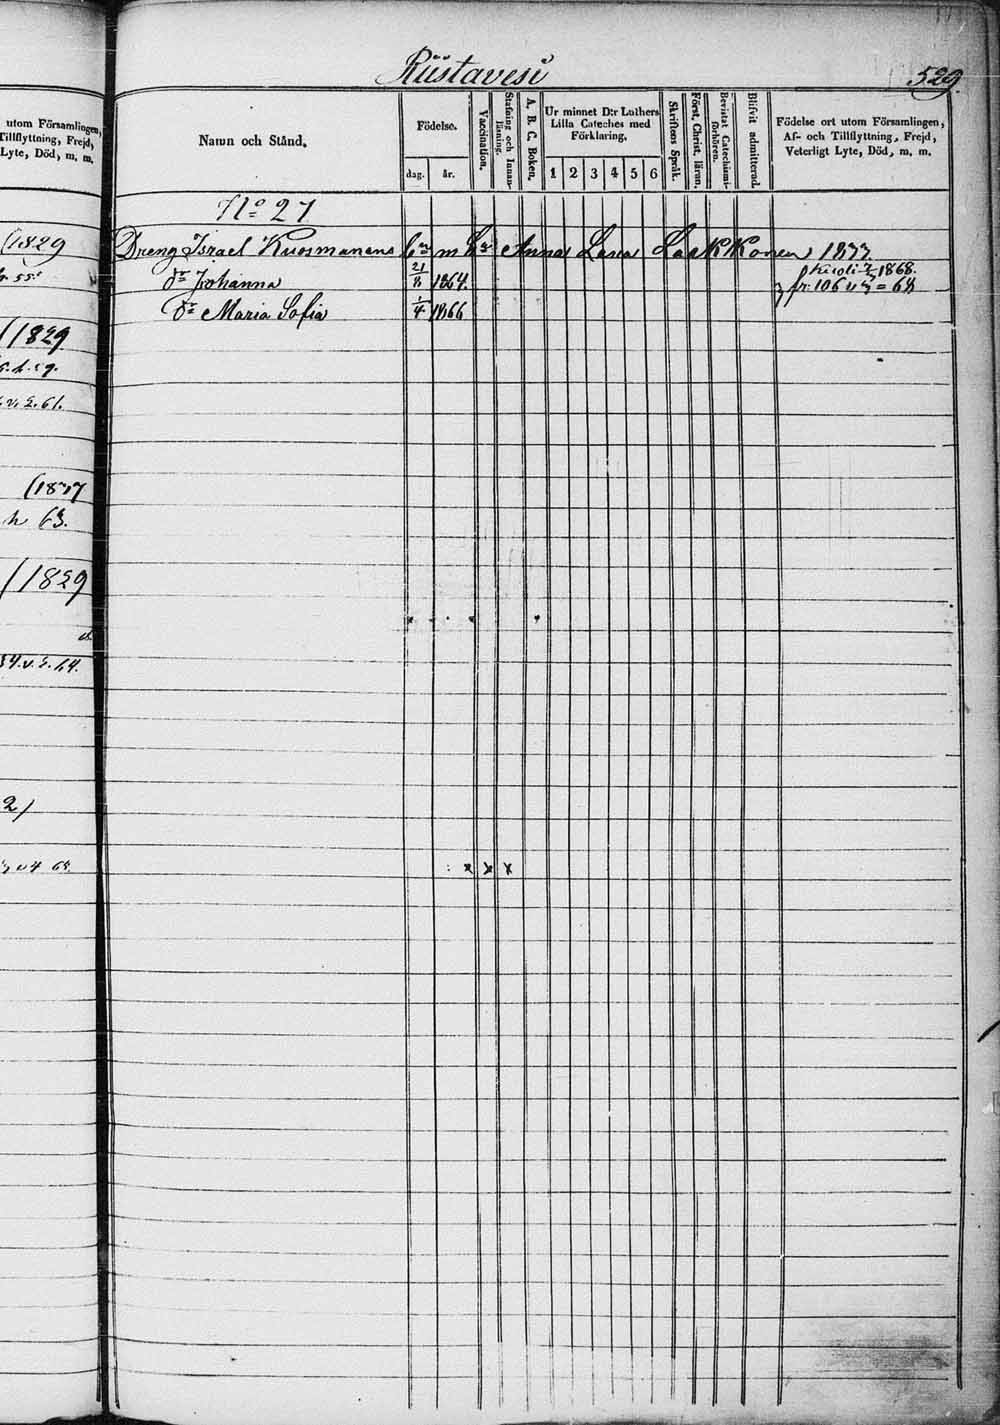 Riistavesi
529.
utom Församlingen,
Tillflyttning, Frejd,
Lyte, Död, m. m.
Namn och Stånd.
Födelse.
dag.
år.
Vaccination.
Stafning och Innan-
läsning.
A. B. C. Boken.
Ur minnet D:r Luthers
Lilla Cateches med
Förklaring.
1 2 3 4 5 6
Skriftens Språk.
Först. Christ. läran.
Bevistat Catechismi-
förhören.
Blifvit admitterad.
Födelse ort utom Församlingen,
Af- och Tillflyttning, Frejd,
Veterligt Lyte, Död, m. m.
No 27
Dreng Israel Kuosmanens m Anna Lasa Laakkonen 1833
dr Johanna 21/8 1864.
1868.
fr. 106 = 68
dr Maria Sofia 1/4 1866
(1829
55.
(1829
61.
63.
(1829
2)